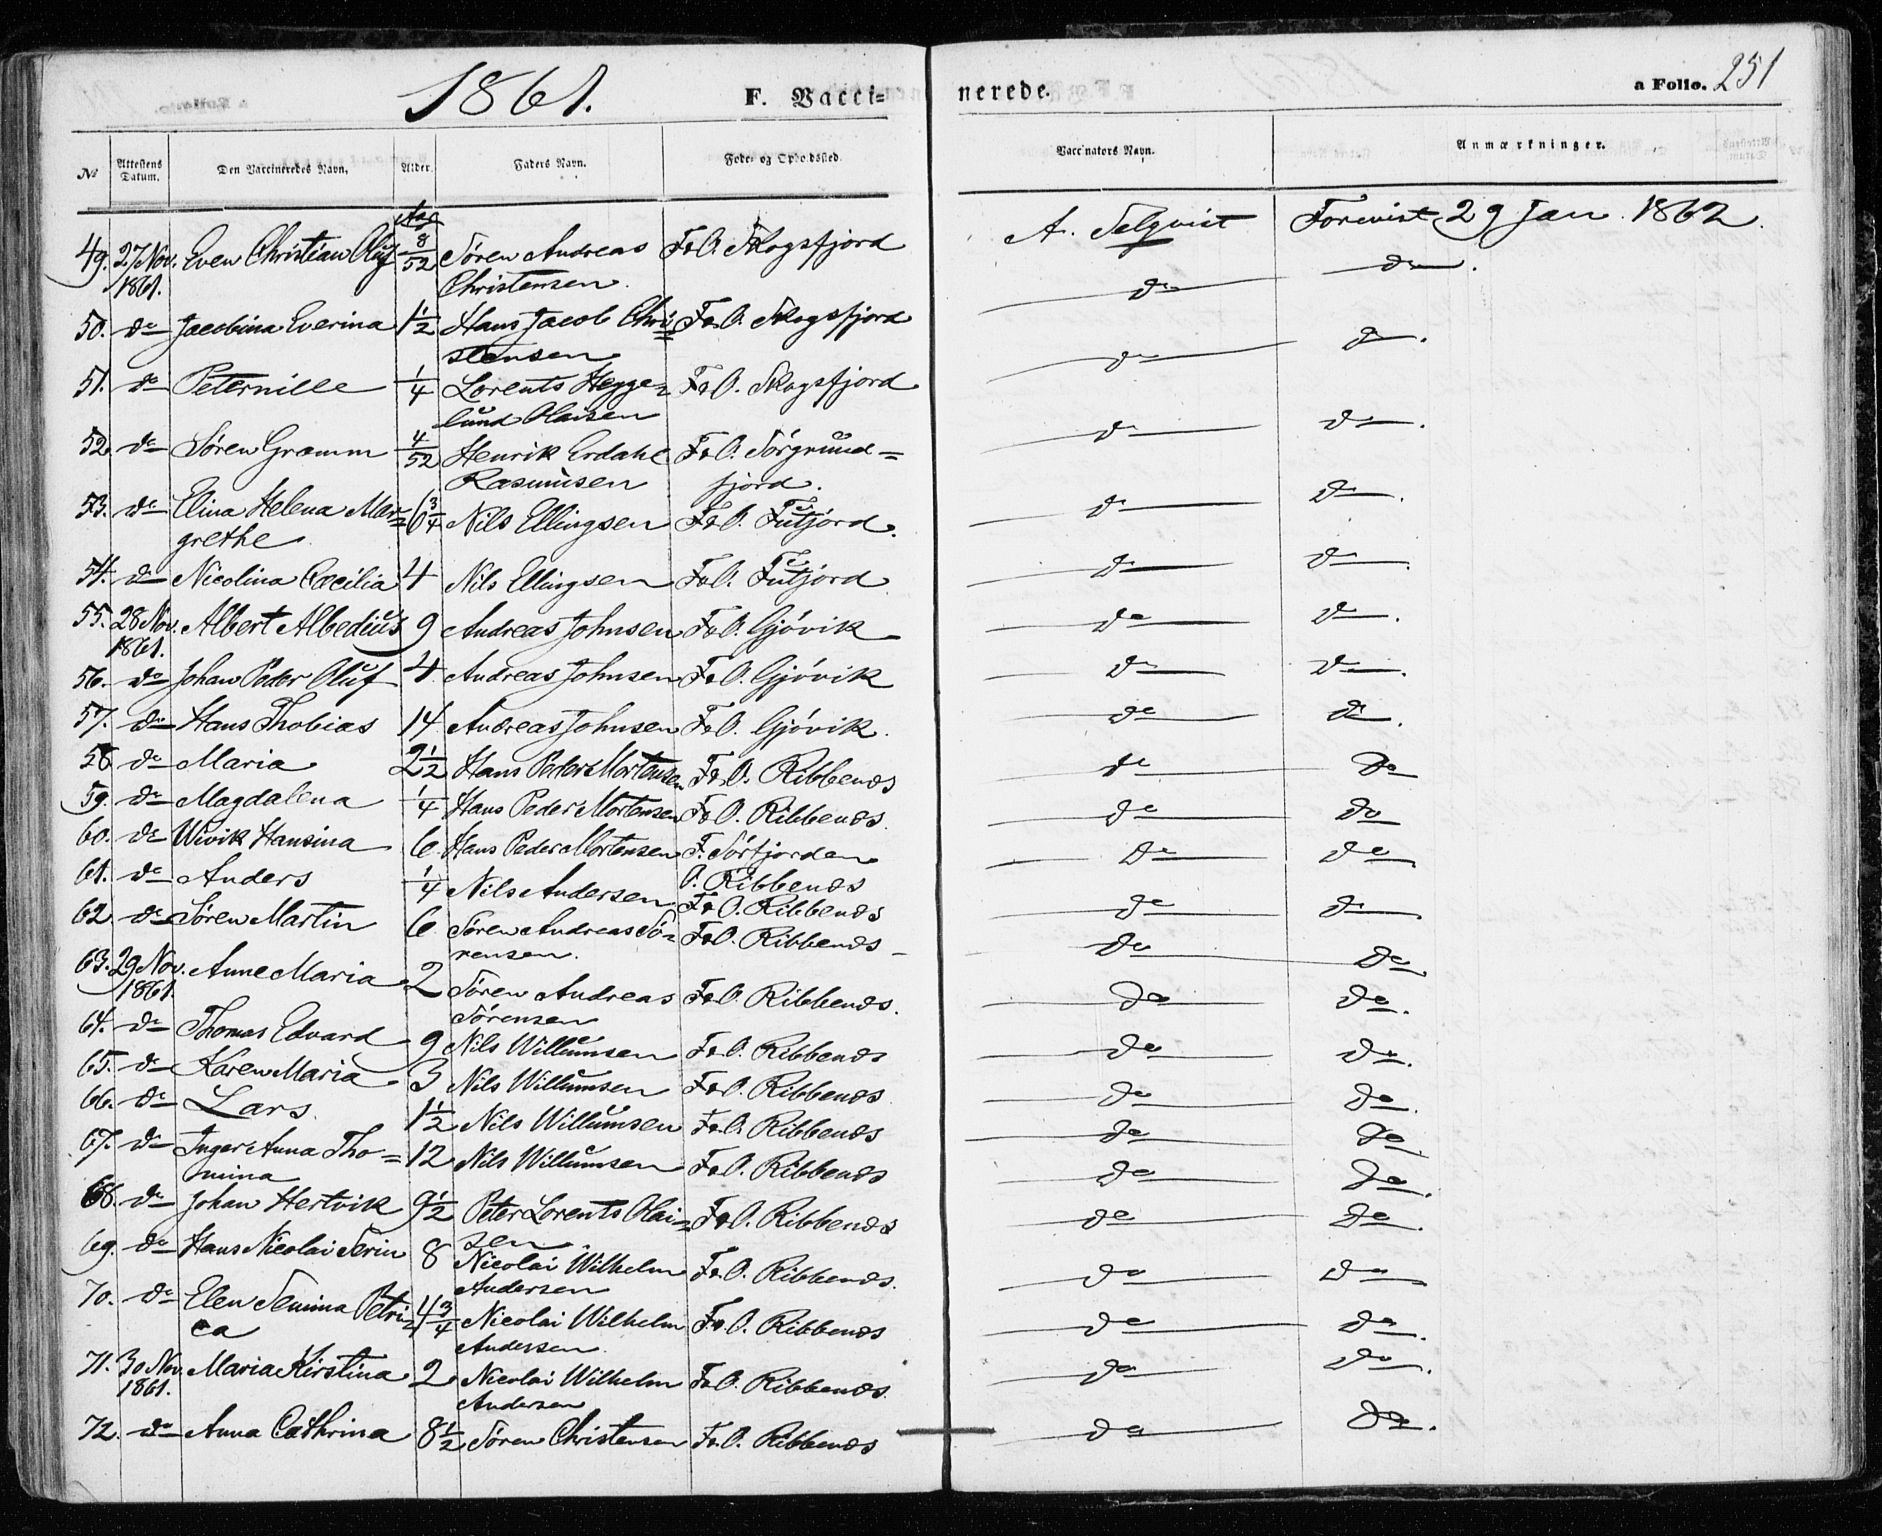 1861. F. Vacci= nerede. a Folio. 251
№ Attestens Datum. Den Vaccineredes Navn. Alder. Faders Navn. Føde- og Opholdssted. Vaccinators Navn. Anmærkninger.
Aar
49. 27 Nov. 1861. Even Christian Oluf 8/52 Søren Andreas Christensen. F&O. Skogsfjord A. Selqvist Forevist 29 Jan. 1862.
50. do Jacobina Everina 1 1/2 Hans Jacob Chri=stensen F&O. Skogsfjord do do.
51. do Peternille 1/4 Lorents Hegge=lund Olaisen F&O. Skogsfjord do do.
52. do Søren Gramm 4/52 Henrik Erdahl Rasmusen F&O. Sørgrund=fjord. do do.
53. do Elina Helena Mar=grethe 6 3/4 Nils Ellingsen F&O. Futfjord. do do.
54. do Nicolina Cecilia 4 Nils Ellingsen F&O. Futfjord do do.
55. 28 Nov. 1861. Albert Albedius 9 Andreas Johnsen F&O. Gjøvik do do.
56. do Johan Peder Oluf 4 Andreas Johnsen F&O. Gjøvik do do.
57. do Hans Thobias 14 Andreas Johnsen F&O. Gjøvik. do do.
58 do Maria 2 1/2 Hans Peder Mortensen F&O. Ribbenæs do do
59. do Magdalena 1/4 Hans Peder Mortensen F&O. Ribbenæs. do do
60. do Wivik Hansina 6 Hans Peder Mortensen F. Sørfjorden O. Ribbenæs do do
61. do Anders 1/4 Nils Andersen F&O. Ribbenæs do do
62 do Søren Martin 6 Søren Andreas Sø=rensen. F&O. Ribbenæs do do
63. 29 Nov. 1861. Anne Maria 2 Søren Andreas Sørensen F&O. Ribbenæs. do do.
64. do Thomas Edvard 9 Nils Willumsen F&O. Ribbenæs do do.
65. do Karen Maria 3 Nils Willumsen F&O. Ribbenæs do do.
66. do Lars. 1 1/2 Nils Willumsen F&O. Ribbenæs do do.
67. do Inger Anna Tho=mina 12 Nils Willumsen F&O. Ribbenæs do do.
68. do Johan Hertvik 9 1/2 Peter Lorents Olai=sen F&O. Ribbenæs do do.
69. do Hans Nicolai Serin 8 Nicolai Wilhelm Andersen F&O. Ribbenæs. do do
70. do Elen Semina Petri=ca 4 3/4 Nicolai Wilhelm Andersen F&O. Ribbenæs do do.
71. 30 Nov. 1861. Maria Kirstina 2 Nicolai Wilhelm Andersen F&O. Ribbenæs. do do.
72. do Anna Cathrina 8 1/2 Søren Christensen F&O. Ribbenæs do do.